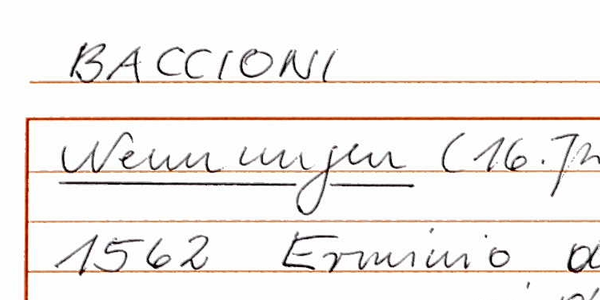 BACCIONI
Nennungen (16.
1562 Erminio